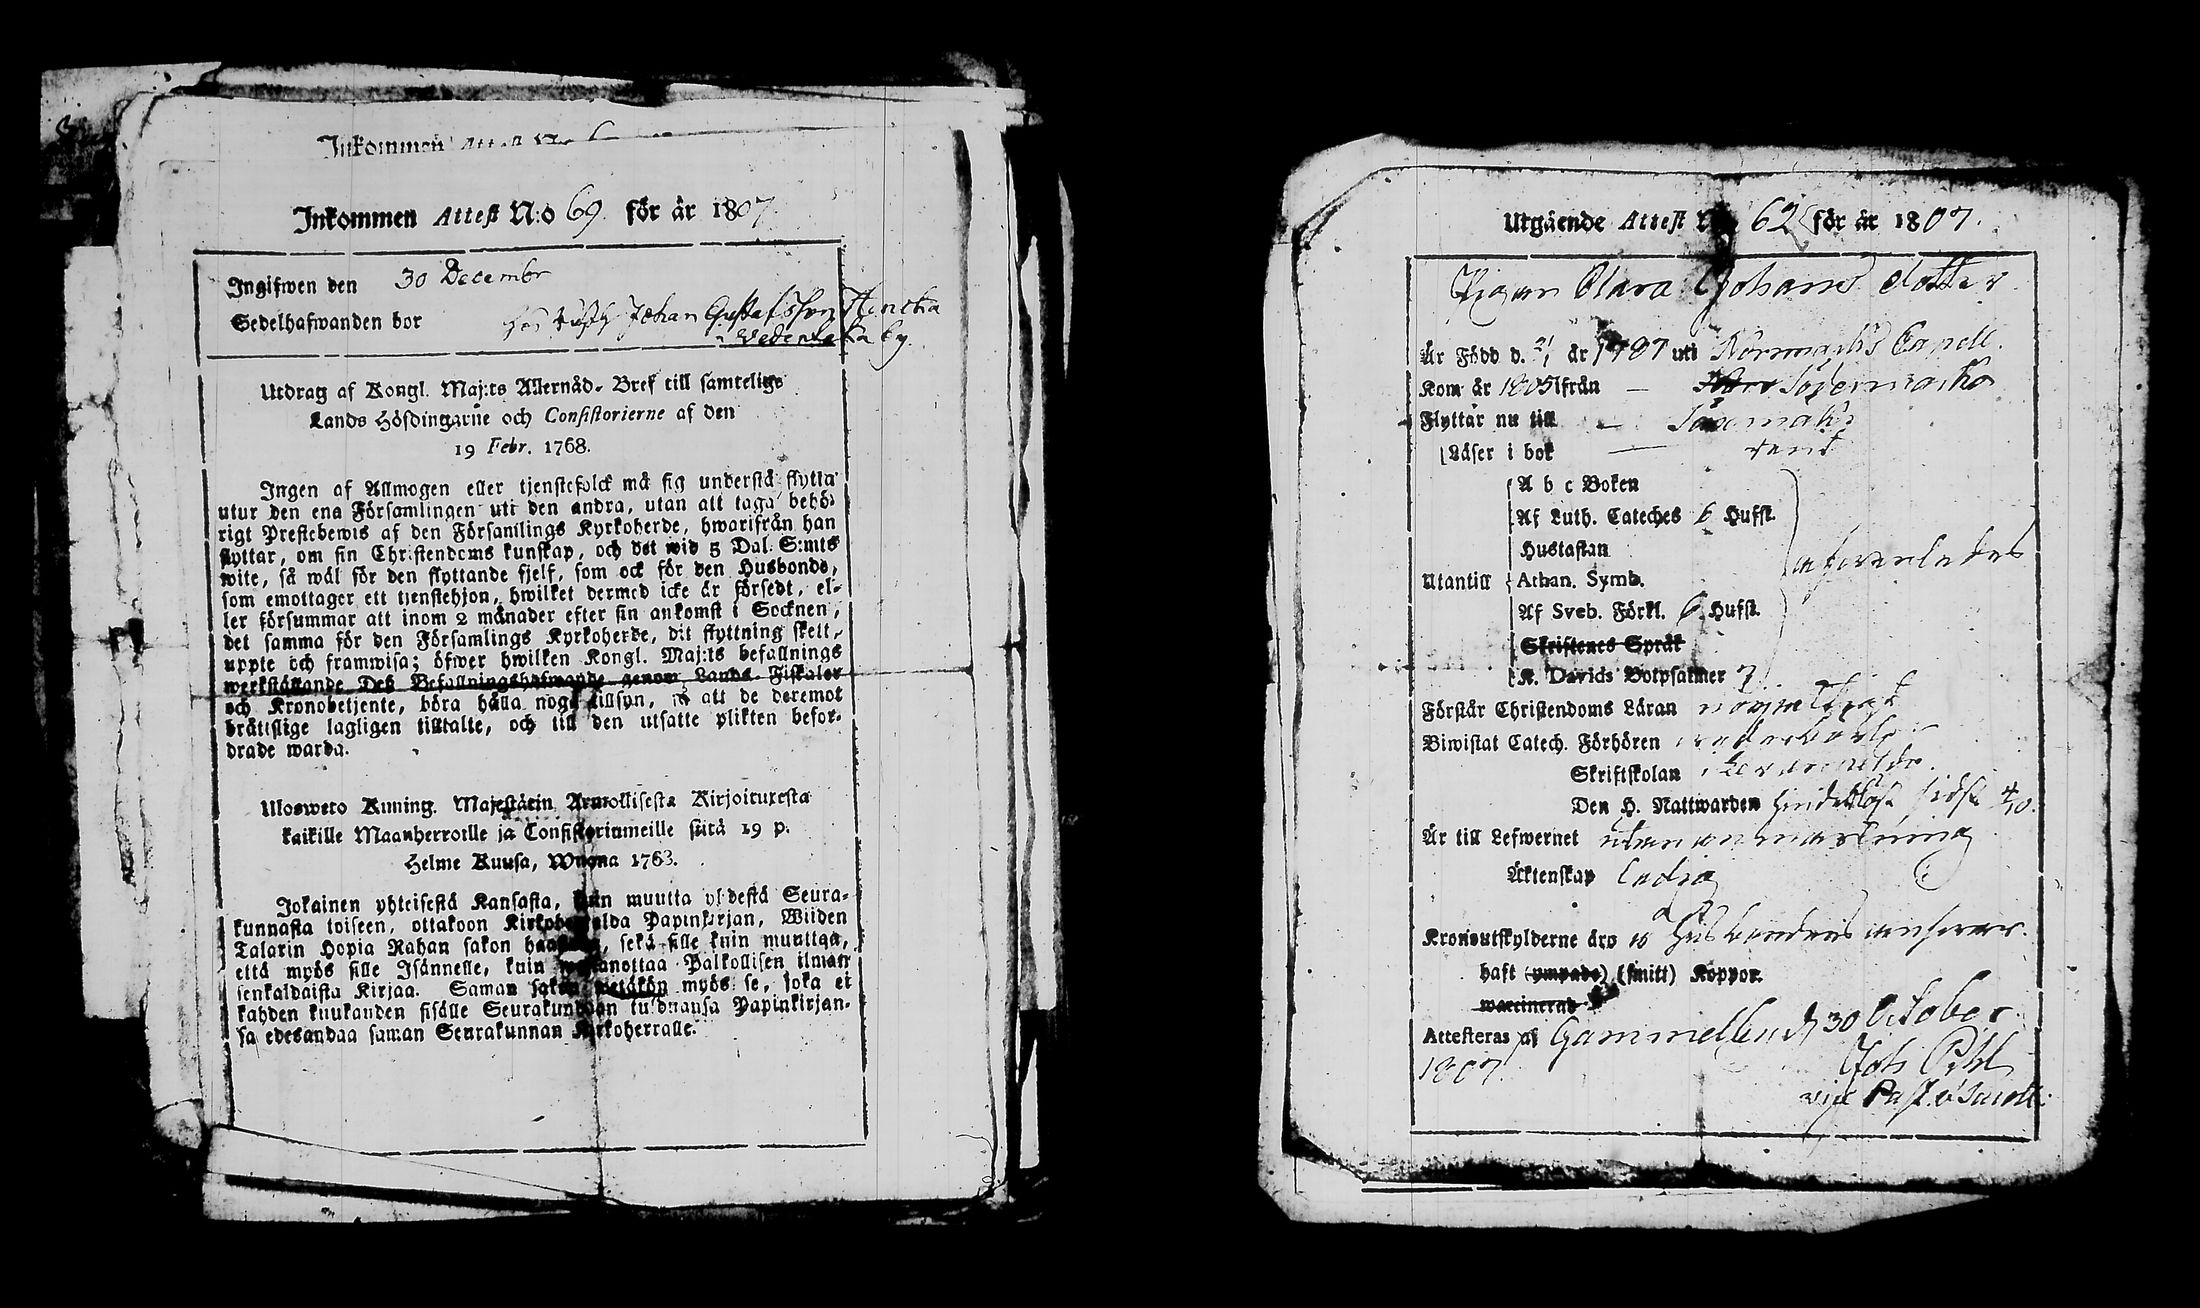 Inkommen Attest N:o 6
Inkommen Attest N:o 69. för år 1807
Ingifwen den 30 Decembr
Sedelhafwanden bor hos Johan Gustafsson
by.
Utdrag af Kongl. Maj:ts Allernåd. Bref till samtelige
Lands Höfdingarne och Consistorierne af den
19 Febr. 1768.
Ingen af Allmogen eller tjenstefolck må sig understå flytta
utur den ena Församlingen uti den andra, utan att taga behö-
rigt Prestebewis af den Församlings Kyrkoherde, hwarifrån han
flyttar, om sin Christendoms kunskap, och det wid 5 Dal. S:mts
wite, så wäl för den flyttande sjelf, som ock för den Husbonde,
som emottager ett tjenstehjon, hwilket dermed icke är försedt, el-
ler försummar att inom 2 månader efter sin ankomst i Socknen,
det samma för den Församlings Kyrkoherde, dit flyttning skett,
uppte och framwisa; öfwer hwilken Kongl. Maj:ts befallnings
werkställande Deß Befallningshafwande genom Lands Fiskaler
och Kronobetjente, böra hålla noga tillsyn, så att de deremot
bråttslige lagligen tilltalte, och till den utsatte plikten befor-
drade warda.
Ulosweto Kuning. Majestätin Armollisesta Kirjoituxesta
kaikille Maanherroille ja Consistoriumeille siitä 19 p.
Helme Kuusa, Wuonna 1763.
Jokainen yhteisestä Kansasta, kuin muutta yhdestä Seura-
kunnasta toiseen, ottakoon Kirkoherralda Papinkirjan, Wiiden
Talarin Hopia Rahan sakon haastolla, sekä sille kuin muuttaa,
että myös sille Isännelle, kuin wastanottaa Palkollisen ilman
senkaldaista Kirjaa. Saman sakon wetäkön myös se, joka ei
kahden kuukauden sisälle Seurakundaan tuldnansa Papinkirjan-
sa edesandaa saman Seurakunnan Kirkoherralle.
Utgående Attest 62 för år 1807.
Pigan Clara Johans dotter
Är Född d. år 1787 uti Capell.
Kom år 1805 från —
Flyttar nu till —
Läser i bok — rent
A b c Boken
Af Luth. Cateches 6 Hufst.
Hustaflan
Utantill Athan. Symb.
Af Sveb. Förkl. 6 Hufst.
Skriftenes Språk
K. Davids Botpsalmer 7
Förstår Christendoms Läran
Biwistat Catech. Förhören
Skriftskolan
Den H. Nattwarden sidst
Är till Lefwernet utan anmärkning
Äktenskap ledig
Kronoutskylderne äro å Husbondens answar.
haft (ympade) (smitt) Koppor.
waccinerad
Attesteras af Gammelby d 30 October
1807. Joh Pihl
vice Past. i